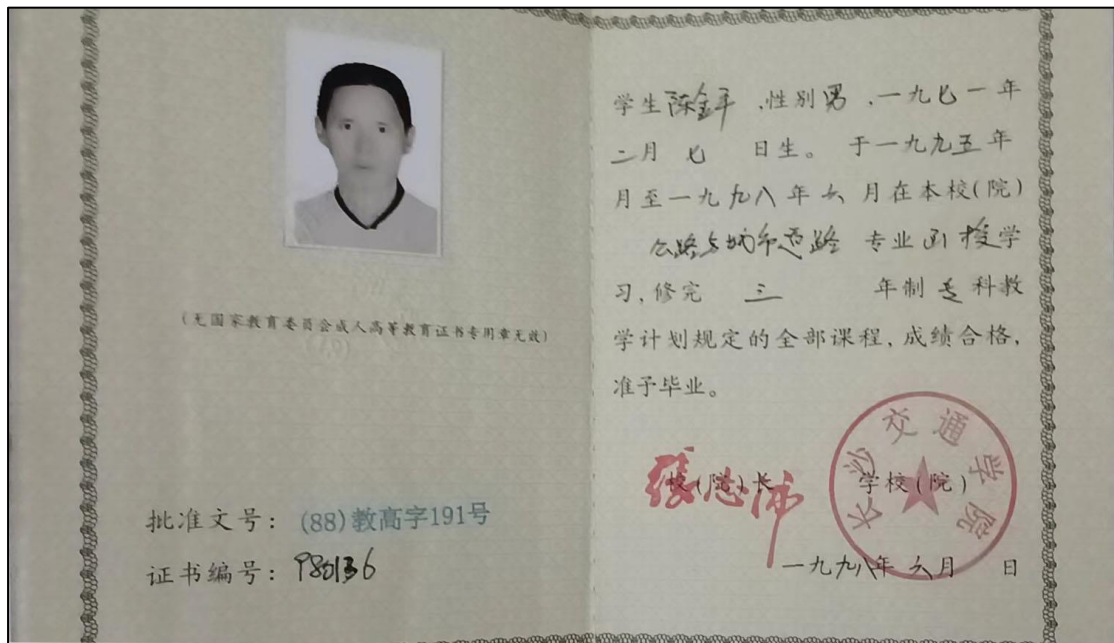 (无国家教育委员会成人高等教育证书专用章无效)
批准文号：(88)教高字191号
证书编号：980136
学生陈金平，性别男，一九七一年
二月七日生。于一九九五年
月至一九九八年六月在本校(院)
公路与城市道路专业函授学
习，修完三年制专科教
学计划规定的全部课程，成绩合格，
准予毕业。
校(院)长 学校(院)
长沙交通学院
一九九八年六月 日